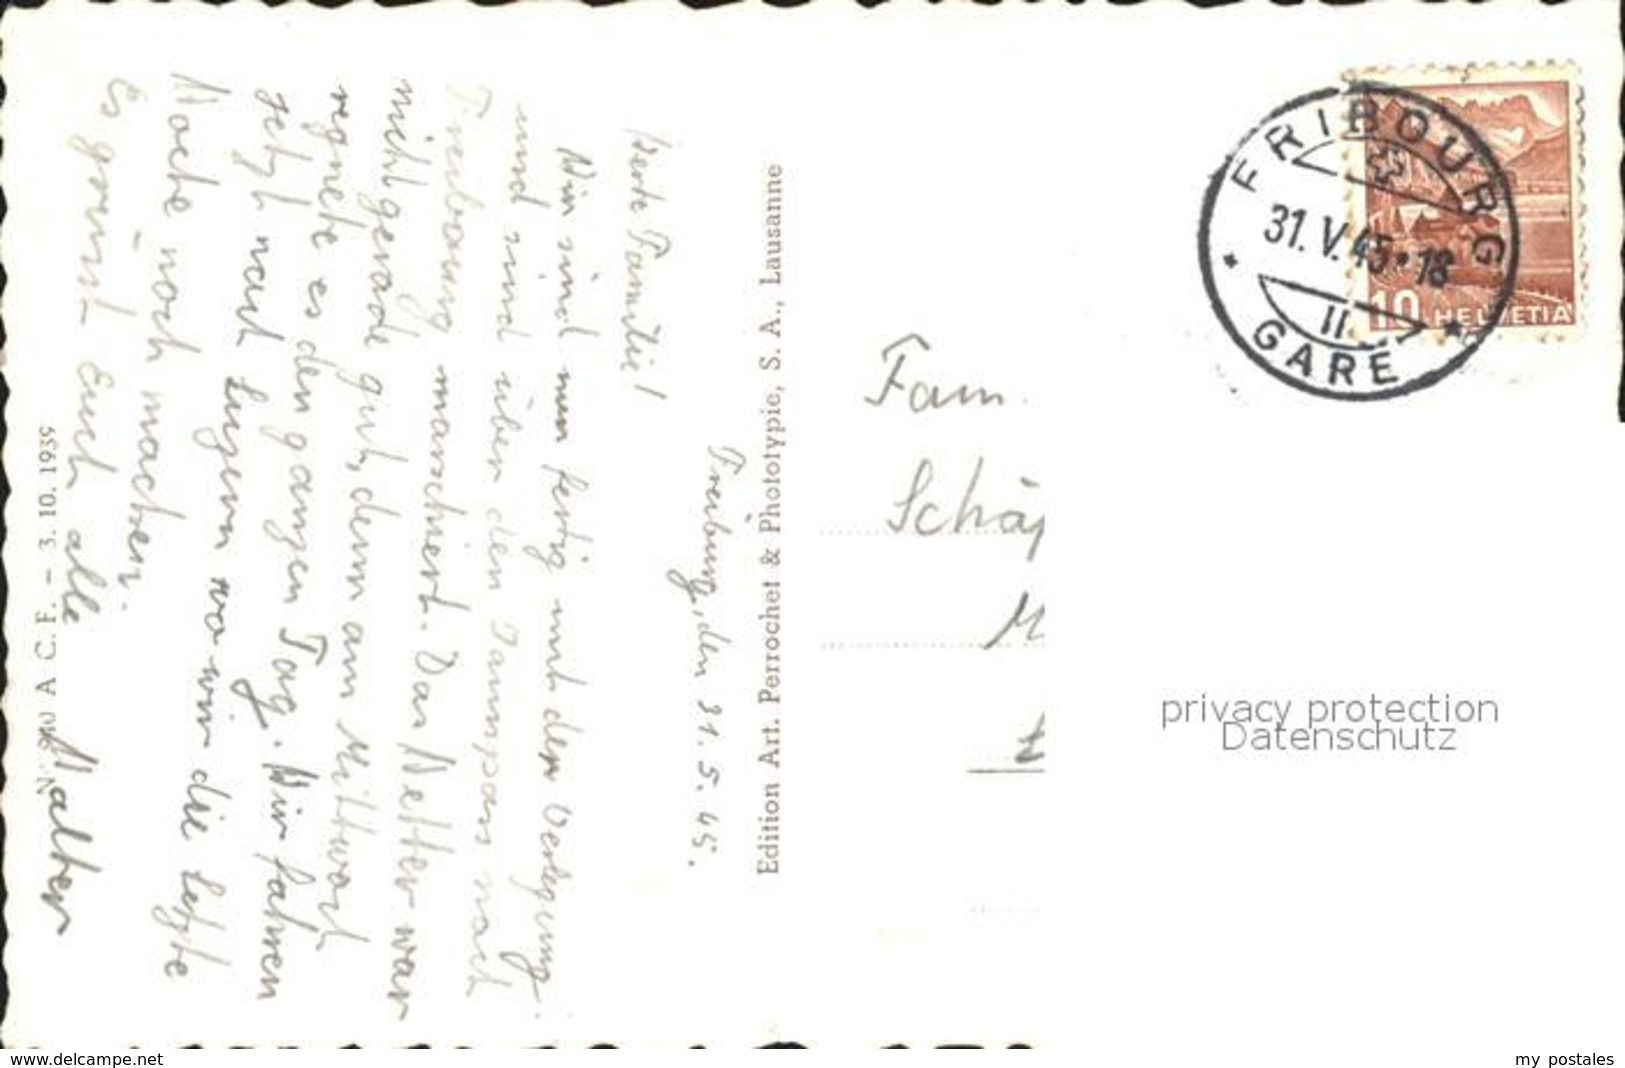 Freiburg, den 31.5.45.
Werte Familie!
Wir sind nun fertig mit der Verlegung
und sind über den Jaunpass nach
Freibourg marschiert. Das Wetter war
nicht gerade gut, denn am Mittwoch
regnete es den ganzen Tag. Wir fahren
jetzt nach Luzern wo wir die letzte
Woche noch machen.
Es grüsst Euch alle
Walter
A C. F. – 3. 10. 1939
Edition Art. Perrochet & Phototypie, S. A., Lausanne
FRIBOURG
31. V. 45 • 18
II
GARE
10 HELVETIA
Fam.
privacy protection
Datenschutz
www.delcampe.net
my postales